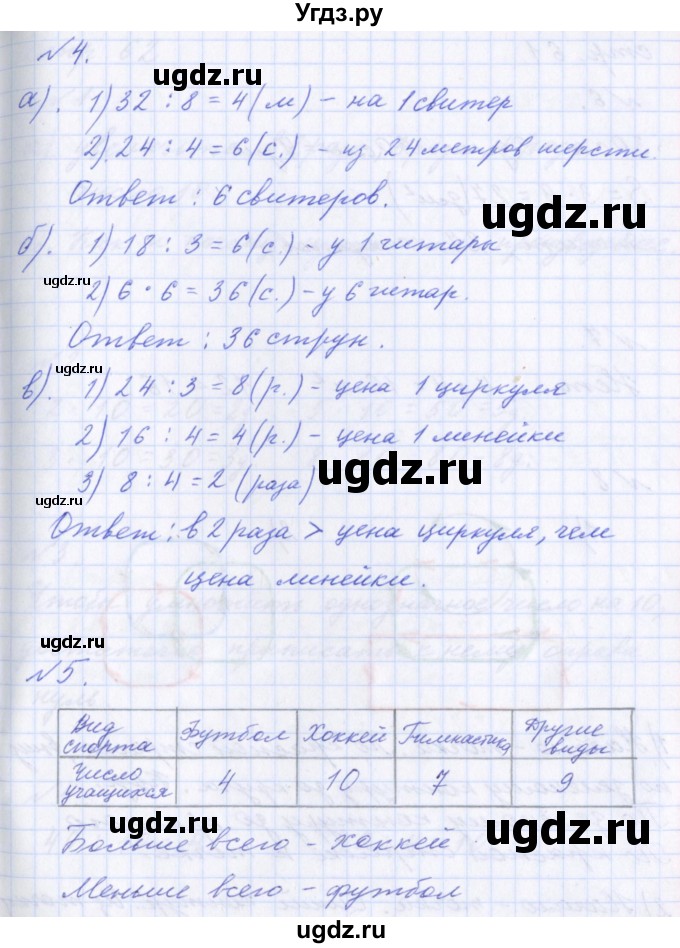 Угдз.ру
№4.
а). 1) 32 : 8 = 4 (м) – на 1 свитер
2) 24 : 4 = 6 (с.) – из 24 метров шерсти.
Ответ : 6 свитеров.
б). 1) 18 : 3 = 6 (с.) – у 1 гитары
2) 6 · 6 = 36 (с.) – у 6 гитар.
Ответ : 36 струн.
в). 1) 24 : 3 = 8 (р.) – цена 1 циркуля
2) 16 : 4 = 4 (р.) – цена 1 линейки
3) 8 : 4 = 2 (раза)
Ответ : в 2 раза > цена циркуля, чем
цена линейки.
№5.
Вид спорта Футбол Хоккей Гимнастика Другие виды
Число учащихся 4 10 7 9
Больше всего – хоккей
Меньше всего – футбол
ugdz.ru
ugdz.ru
ugdz.ru
ugdz.ru
ugdz.ru
ugdz.ru
ugdz.ru
ugdz.ru
ugdz.ru
ugdz.ru